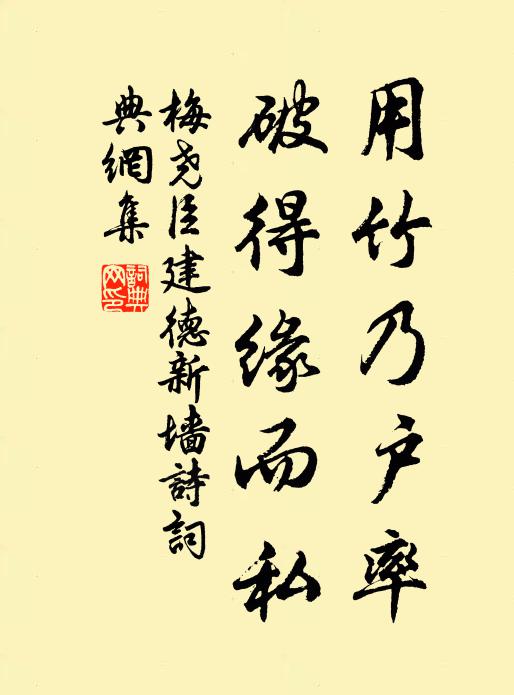 用竹乃户率
破得缘而私
梅尧臣建德新墙詩詞
典網集
詞典
网印